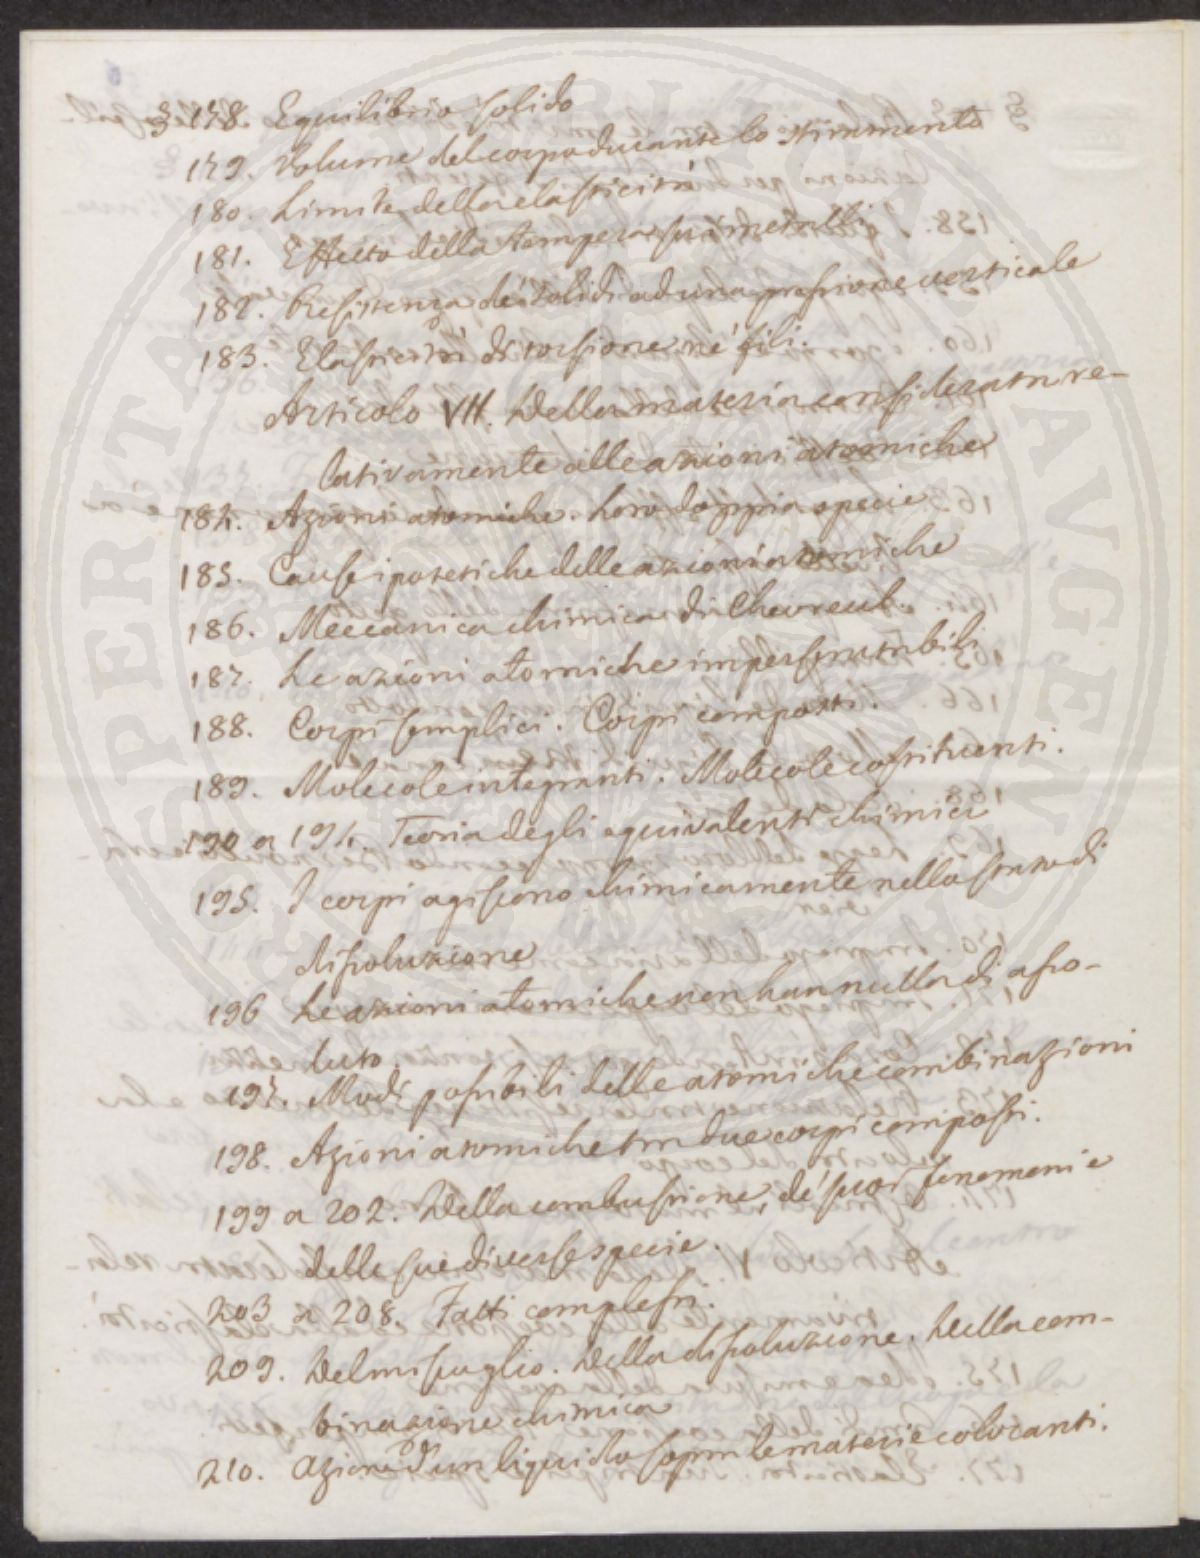 § 178. Equilibrio solido
179. Volume del corpo durante lo stiramento
180. Limite della elasticità
181. Effetto della tempera su i metalli
182. Resistenza de' solidi ad una pressione verticale
183. Elasticità di torsione ne' fili.
Articolo VII. Della materia considerata re-
lativamente alle azioni atomiche
184. Azioni atomiche. Loro doppia specie
185. Cause ipotetiche delle azioni atomiche
186. Meccanica chimica di Chevreul.
187. Le azioni atomiche imperscrutabili
188. Corpi semplici. Corpi composti.
189. Molecole integranti. Molecole costituenti.
190 a 194. Teoria degli equivalenti chimici
195. I corpi agiscono chimicamente nello stato di
dissoluzione
196 Le azioni atomiche non han nulla di asso-
luto
197. Modi possibili delle atomiche combinazioni
198. Azioni atomiche tra due corpi composti.
199 a 202. Della combustione, de' suoi fenomeni e
delle sue diverse specie.
203 a 208. Fatti complessi.
209. Del miscuglio. Della dissoluzione. Della com-
binazione chimica
210. Azione d'un liquido sopra le materie coloranti.